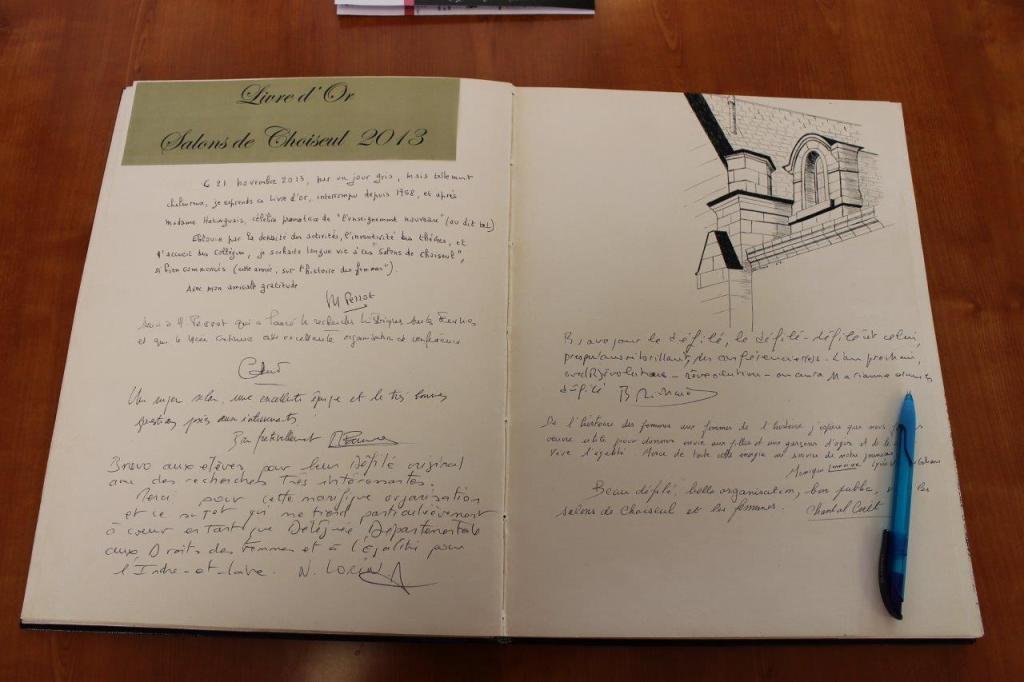 Livre d'Or
Salons de Choiseul 2013
Ce 21 novembre 2013, par un jour gris, mais tellement
chaleureux, je reprends ce Livre d'or, interrompu depuis 1968, et après
madame Hatinguais, célèbre promotrice de "l'enseignement nouveau" (ou dit tel)
Eblouie par la densité des activités, l'inventivité des thèmes, et
l'accueil des collégiens, je souhaite longue vie à ces "Salons de Choiseul",
si bien commencés (cette année, sur "l'histoire des femmes").
Avec mon amicale gratitude
M Perrot
à M. Perrot qui a lancé la recherche historique sur les femmes
et que le lycée continue cette excellente organisation de conférences
Un super salon, une excellente équipe et de très bonnes
questions posées aux intervenants.
Bien fraternellement
Bravo aux élèves pour leur défilé original
avec des recherches très intéressantes.
Merci pour cette magnifique organisation
et ce sujet qui me tient particulièrement
à coeur en tant que Déléguée Départementale
aux Droits des Femmes et à l'Egalité pour
l'Indre-et-Loire. N. LORIN
Bravo pour le défilé, le défilé-défilé et celui,
presqu'aussi brillant, des conférencier(e)s. L'an prochain,
avec (R)évolution - rêvevolution - on aura Marianne
défilé B
De l'histoire des femmes aux femmes de l'histoire j'espère que nous
oeuvre utile pour donner envie aux filles et aux garçons d'agir et de
Vive l'égalité. Merci de toute cette énergie au service de notre jeunesse
Monique
Beau défilé, belle organisation, bon public, les
salons de Choiseul et les femmes. Chantal